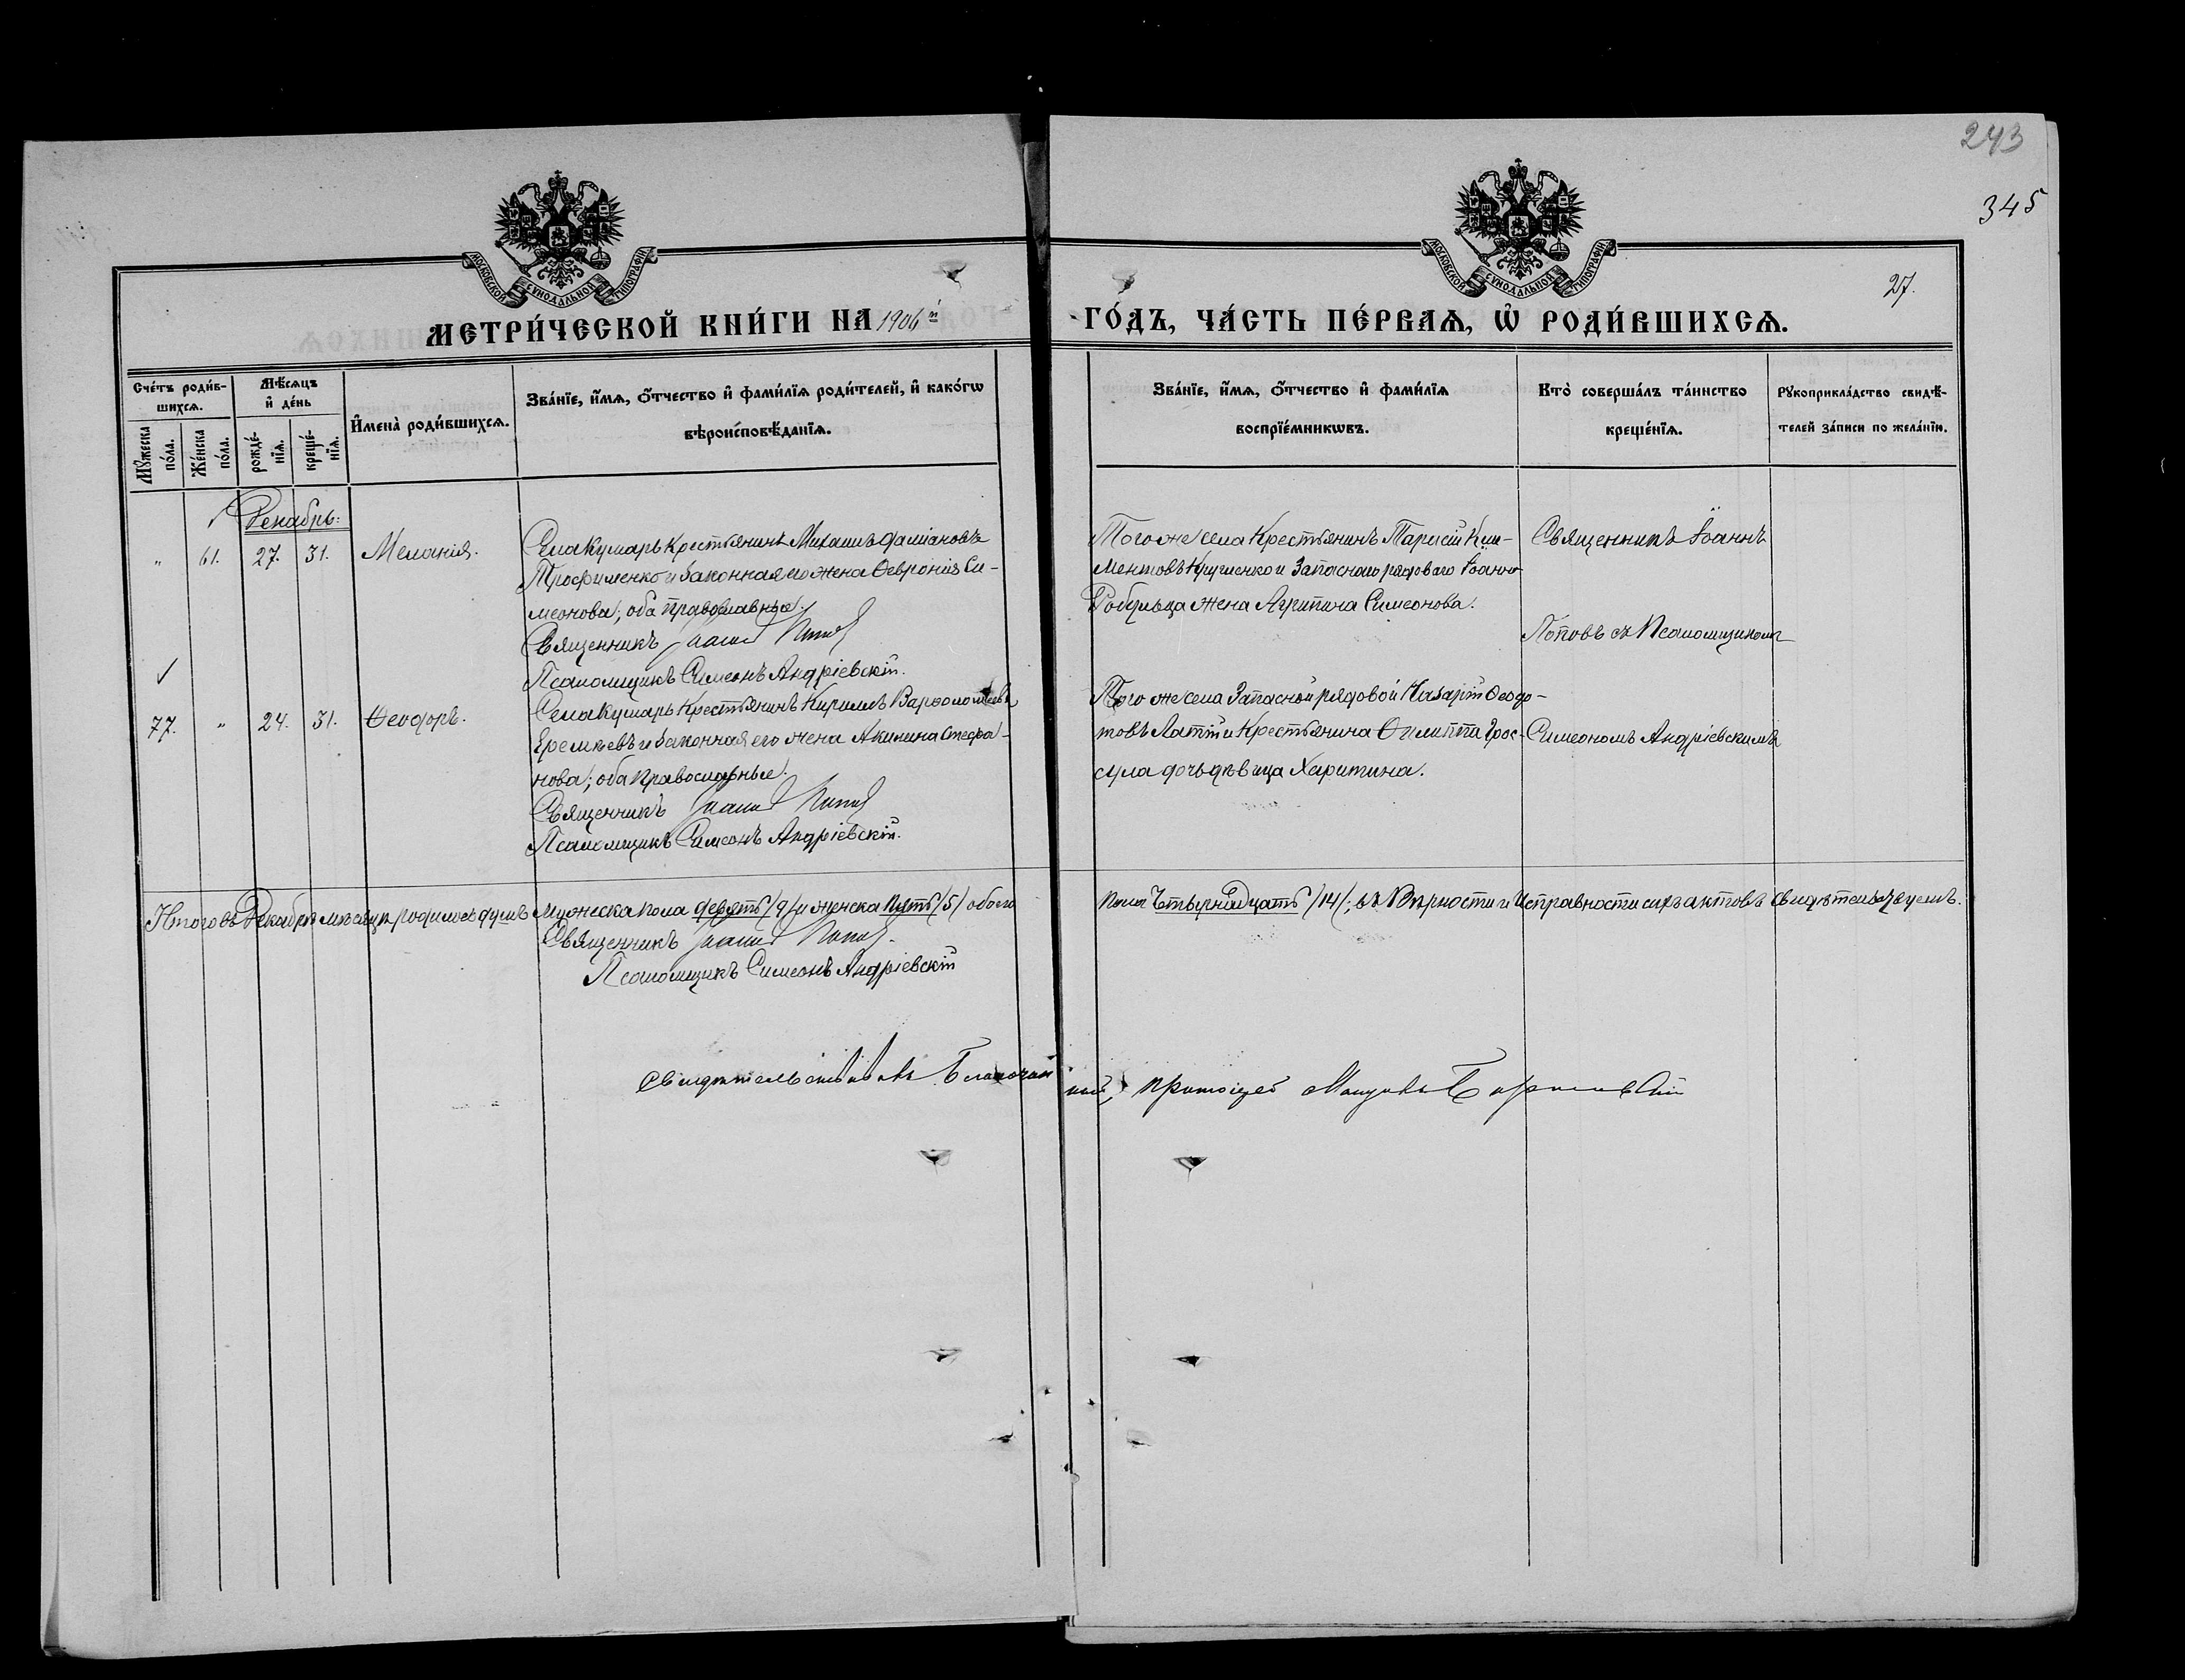 243
345
27.
МОСКОВСКОЙ СѴНОДАЛЬНОЙ ТИПОГРАФІИ
МОСКОВСКОЙ СѴНОДАЛЬНОЙ ТИПОГРАФІИ
МЕТРИ́ЧЕСКОЙ КНИ́ГИ НА 1906й ГО́ДЪ, ЧА́СТЬ ПЕ́РВАѦ, Ѡ҆ РОДИ́ВШИХСѦ.
Сче́тъ роди́в-
шихсѧ.
Мꙋ́жеска по́ла.
Же́нска по́ла.
Мѣ́сѧцъ
и҆ де́нь
рожде́-
нїѧ.
креще́-
нїѧ.
И҆мена̀ роди́вшихсѧ.
Зва́нїе, и҆́мѧ, ѻ҆́тчество и҆ фами́лїѧ роди́телей, и҆ како́гѡ
вѣроисповѣ́данїѧ.
Зва́нїе, и҆́мѧ, ѻ҆́тчество и҆ фами́лїѧ
воспрїе́мникѡвъ.
Кто̀ соверша́лъ та́инство
креще́нїѧ.
Рꙋкоприкла́дство свидѣ́-
телей за́писи по жела́нїю.
Декабрь:
„ 61. 27. 31. Меланія.
Села Кумарь Крестьянинъ Михаилъ Даміановъ
Трофименко и законная его жена Ѳевронія Си-
меонова; оба православные.
Священникъ Іоаннъ Поповъ
Псаломщикъ Симеонъ Андріевскій.
Того же села Крестьянинъ Паисій Кли-
ментовъ и Запаснаго рядоваго Іоанна
жена Агрипина Симеонова.
Священникъ Іоаннъ
Поповъ съ Псаломщикомъ
Симеономъ Андріевскимъ
77. „ 24. 31. Ѳеодоръ.
Села Кумарь Крестьянинъ Кириллъ Варѳоломеевъ
Еремѣевъ и законная его жена Акилина Стефа-
нова; оба Православные.
Священникъ Іоаннъ Поповъ
Псаломщикъ Симеонъ Андріевскій.
Того же села Запасной рядовой Назарій Ѳеодо-
товъ Лаптій и Крестьянина Ѳилиппа Грос-
сула дочь дѣвица Харитина.
Итого въ Декабрѣ мѣсяцѣ родилось душъ Мужеска пола девять /9/ и женска пять /5/ обоего
пола Четырнадцать /14/; въ Вѣрности и Исправности сихъ актовъ Свидѣтельствуемъ.
Священникъ Іоаннъ Поповъ.
Псаломщикъ Симеонъ Андріевскій
Свидѣтельствовалъ Благочин
ный, протоіерей